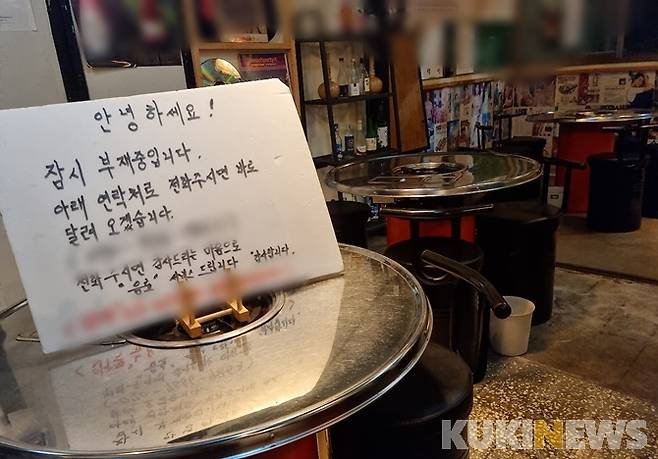 안녕하세요!
잠시 부재중입니다.
아래 연락처로 전화주시면 바로
달려 오겠습니다.
전화 주시면 감사드리는 마음으로
"음료" 서비스 드립니다 감사합니다.
KUKINEWS